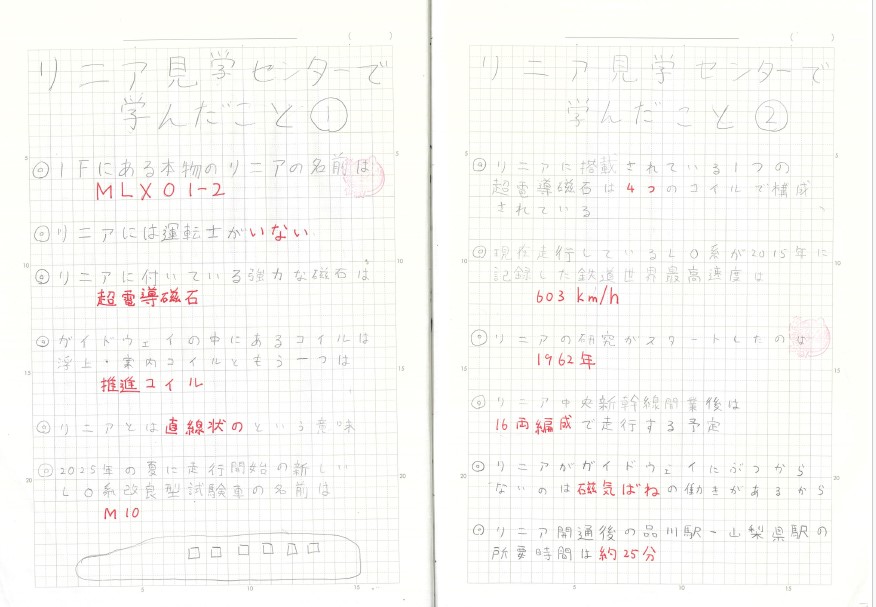 リニア見学センターで
学んだこと①
◎1Fにある本物のリニアの名前は
MLX01-2
◎リニアには運転士がいない
◎リニアに付いている強力な磁石は
超電導磁石
◎ガイドウェイの中にあるコイルは
浮上・案内コイルともう一つは
推進コイル
◎リニアとは直線状のという意味
◎2025年の夏に走行開始の新しい
L0系改良型試験車の名前は
M10
リニア見学センターで
学んだこと②
◎リニアに搭載されている1つの
超電導磁石は4つのコイルで構成
されている
◎現在走行しているL0系が2015年に
記録した鉄道世界最高速度は
603km/h
◎リニアの研究がスタートしたのは
1962年
◎リニア中央新幹線開業後は
16両編成で走行する予定
◎リニアがガイドウェイにぶつから
ないのは磁気ばねの働きがあるから
◎リニア開通後の品川駅~山梨県駅の
所要時間は約25分